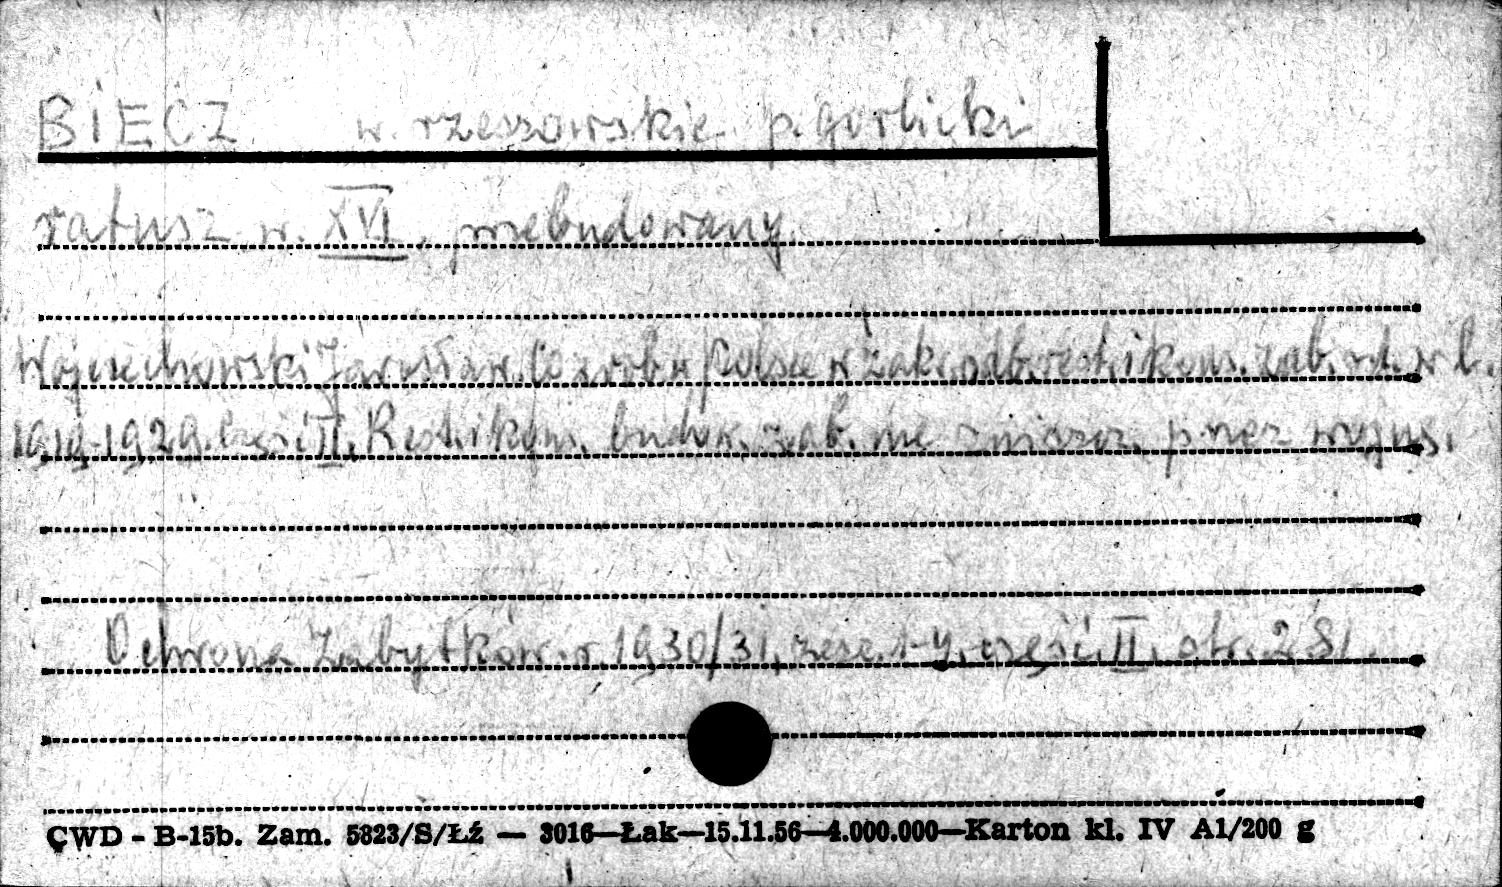 BIECZ w. rzeszowskie p. gorlicki
ratusz w. XVI, przebudowany
Wojciechowski Jarosław. Co zrob. w Polsce w zakr. odb. rest. i kons. zab. w l.
1919-1929. Część II. Rest. i kons. budow. zab. nie zniszcz. przez
Ochrona Zabytków. r. 1930/31, zesz. 1-4, część II, str. 281.
CWD - B-15b. Zam. 5823/S/Łź — 3016—Łak—15.11.56—4.000.000—Karton kl. IV A1/200 g